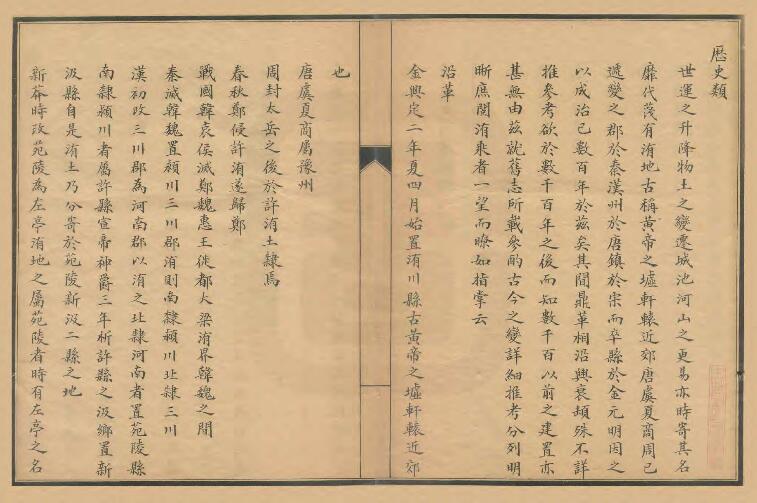 歷史類
世運之升降物土之變遷城池河山之更易亦時寄其名
靡代蔑有洧地古稱黃帝之墟軒轅近郊唐虞夏商周已
遞變之郡於秦漢州於唐鎮於宋而卒縣於金元明因之
以成治已數百年於茲矣其間鼎革相沿興衰頡殊不詳
推參考欲於數千百年之後而知數千百以前之建置亦
甚無由茲就舊志所載參酌古今之變詳細推考分列明
晰庶閱洧乘者一望而瞭如指掌云
沿革
金興定二年夏四月始置洧川縣古黃帝之墟軒轅近郊
也
唐虞夏商屬豫州
周封太岳之後於許洧土隸焉
春秋鄭侵許洧遂歸鄭
戰國韓哀侯滅鄭魏惠王徙都大梁洧界韓魏之間
秦滅韓魏置潁川三川郡洧則南隸潁川北隸三川
漢初改三川郡為河南郡以洧之北隸河南者置苑陵縣
南隸潁川者屬許縣宣帝神爵三年析許縣之汲鄉置新
汲縣自是洧土乃分寄於苑陵新汲二縣之地
新莽時改苑陵為左亭洧地之屬苑陵者時有左亭之名